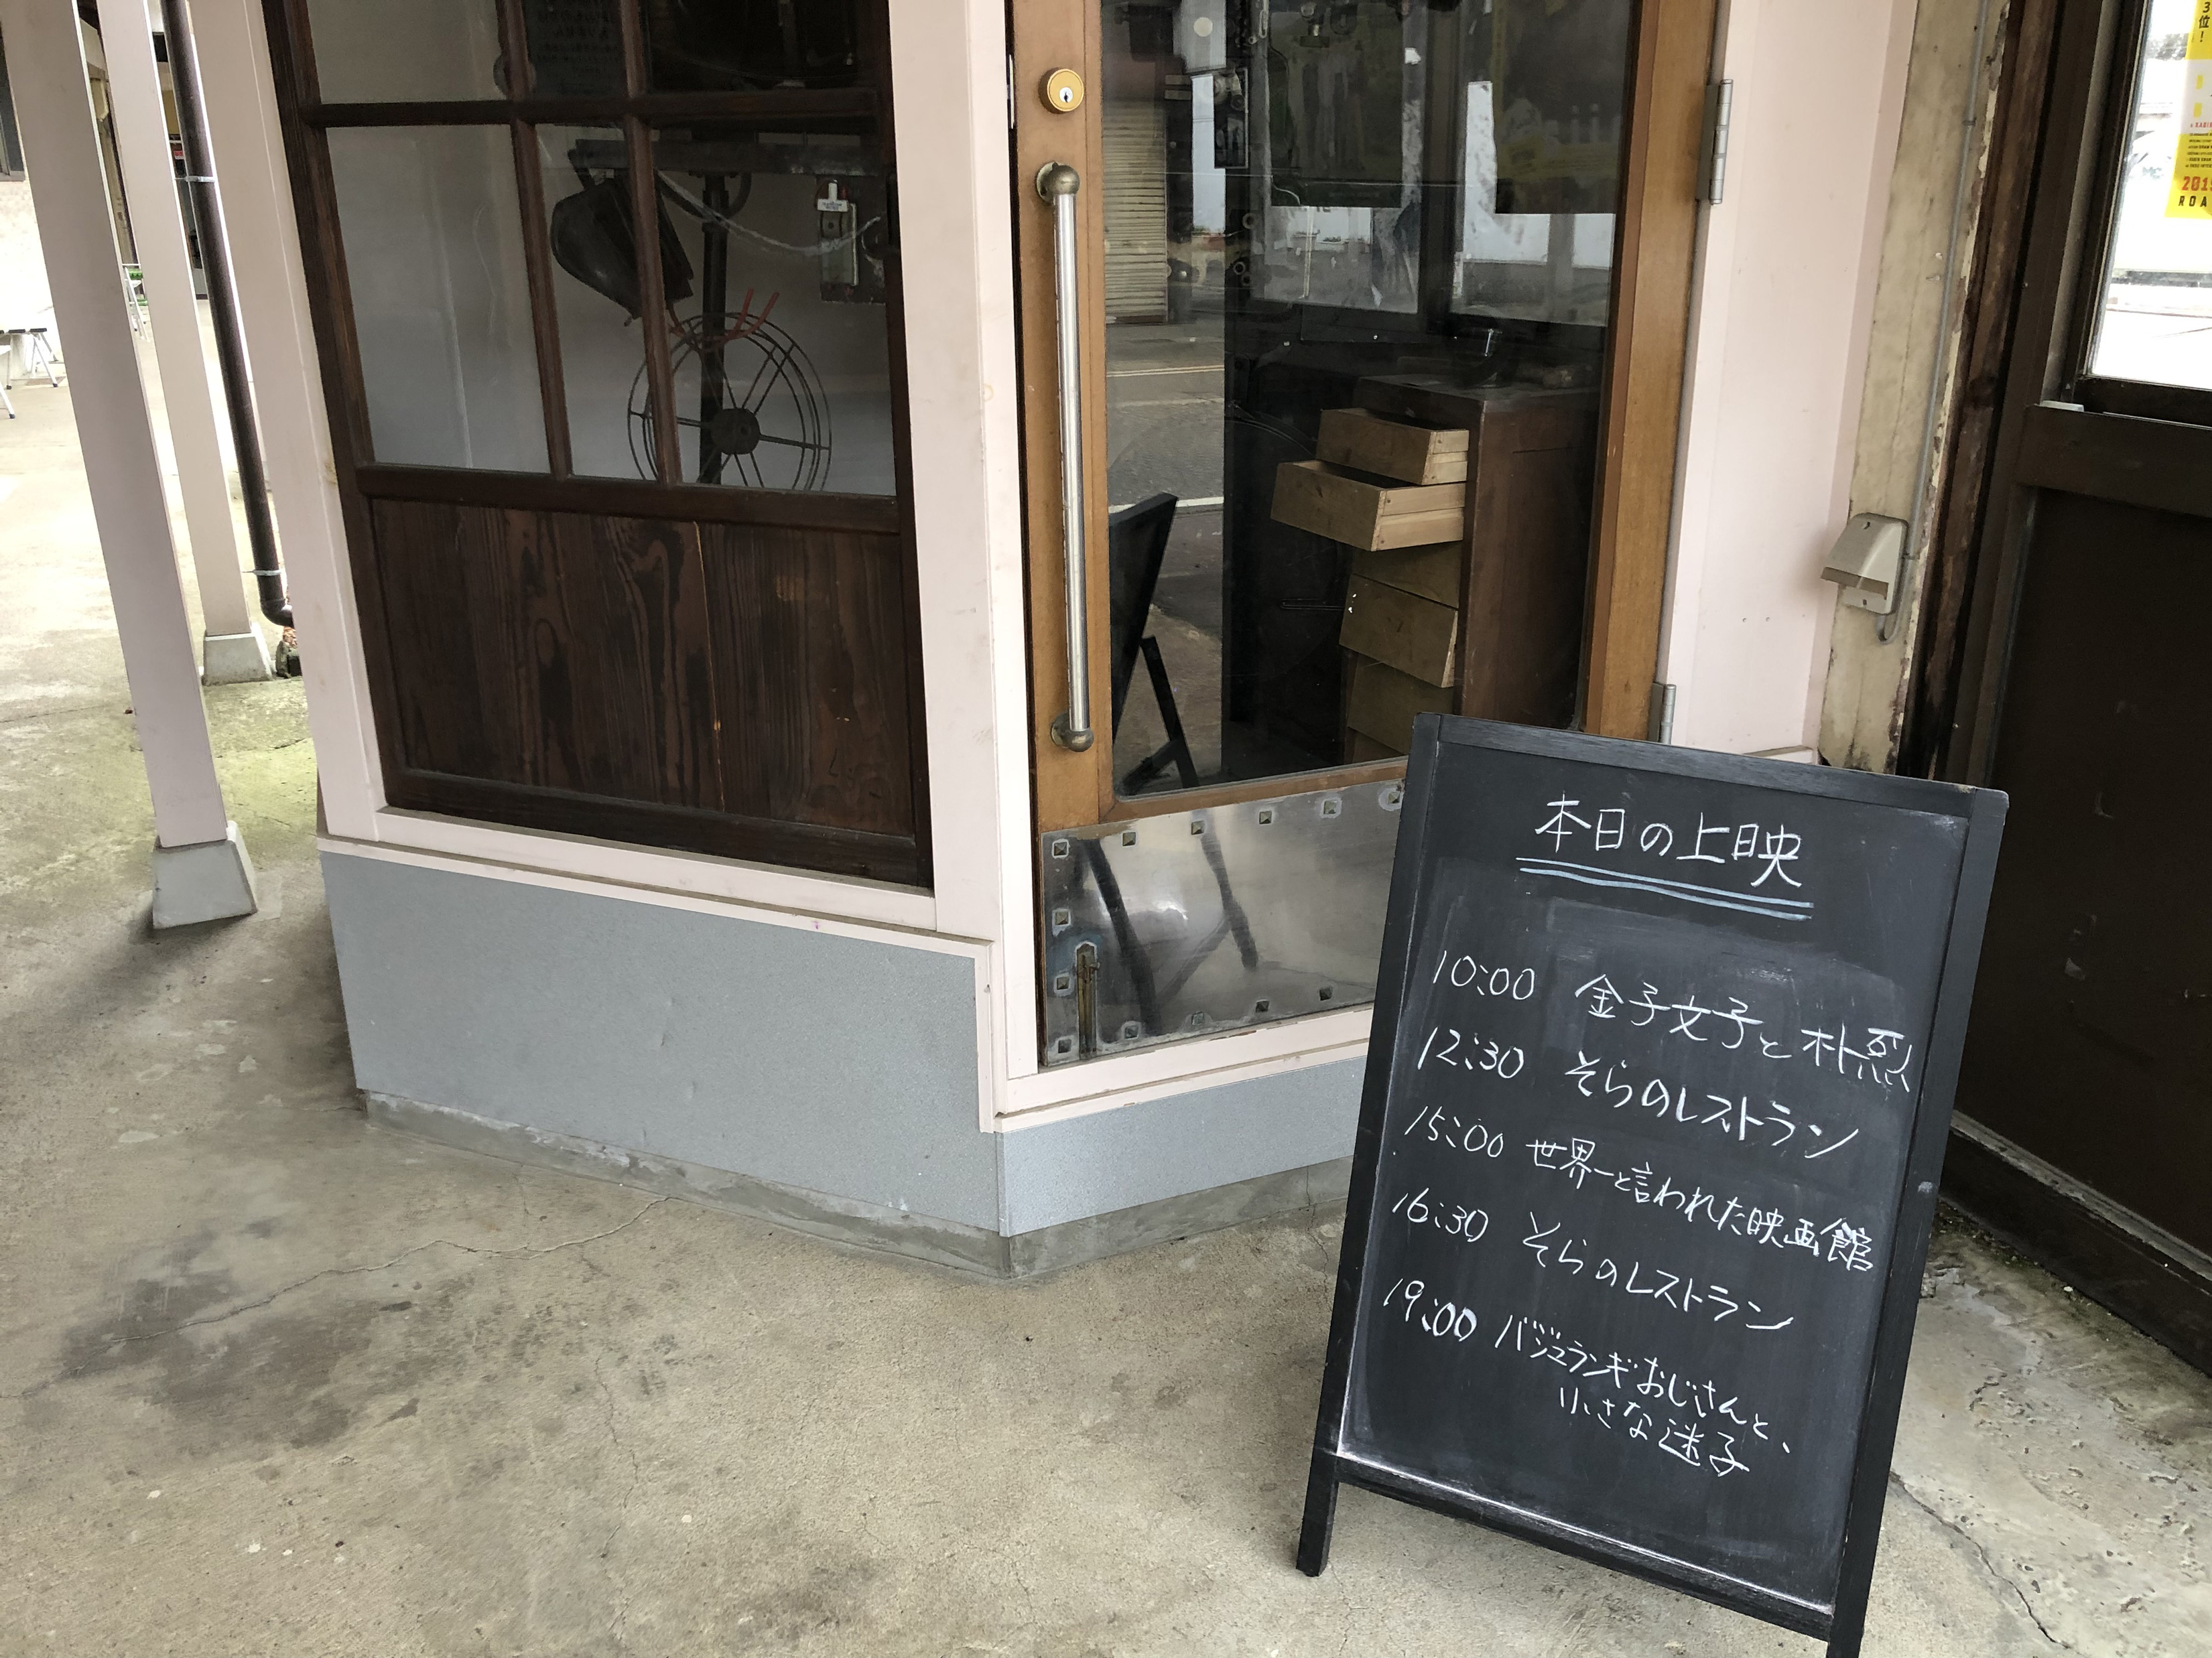 本日の上映
10:00 金子文子と朴烈
12:30 そらのレストラン
15:00 世界一と言われた映画館
16:30 そらのレストラン
19:00 バジュランギおじさんと、
小さな迷子
3
位!
ROA